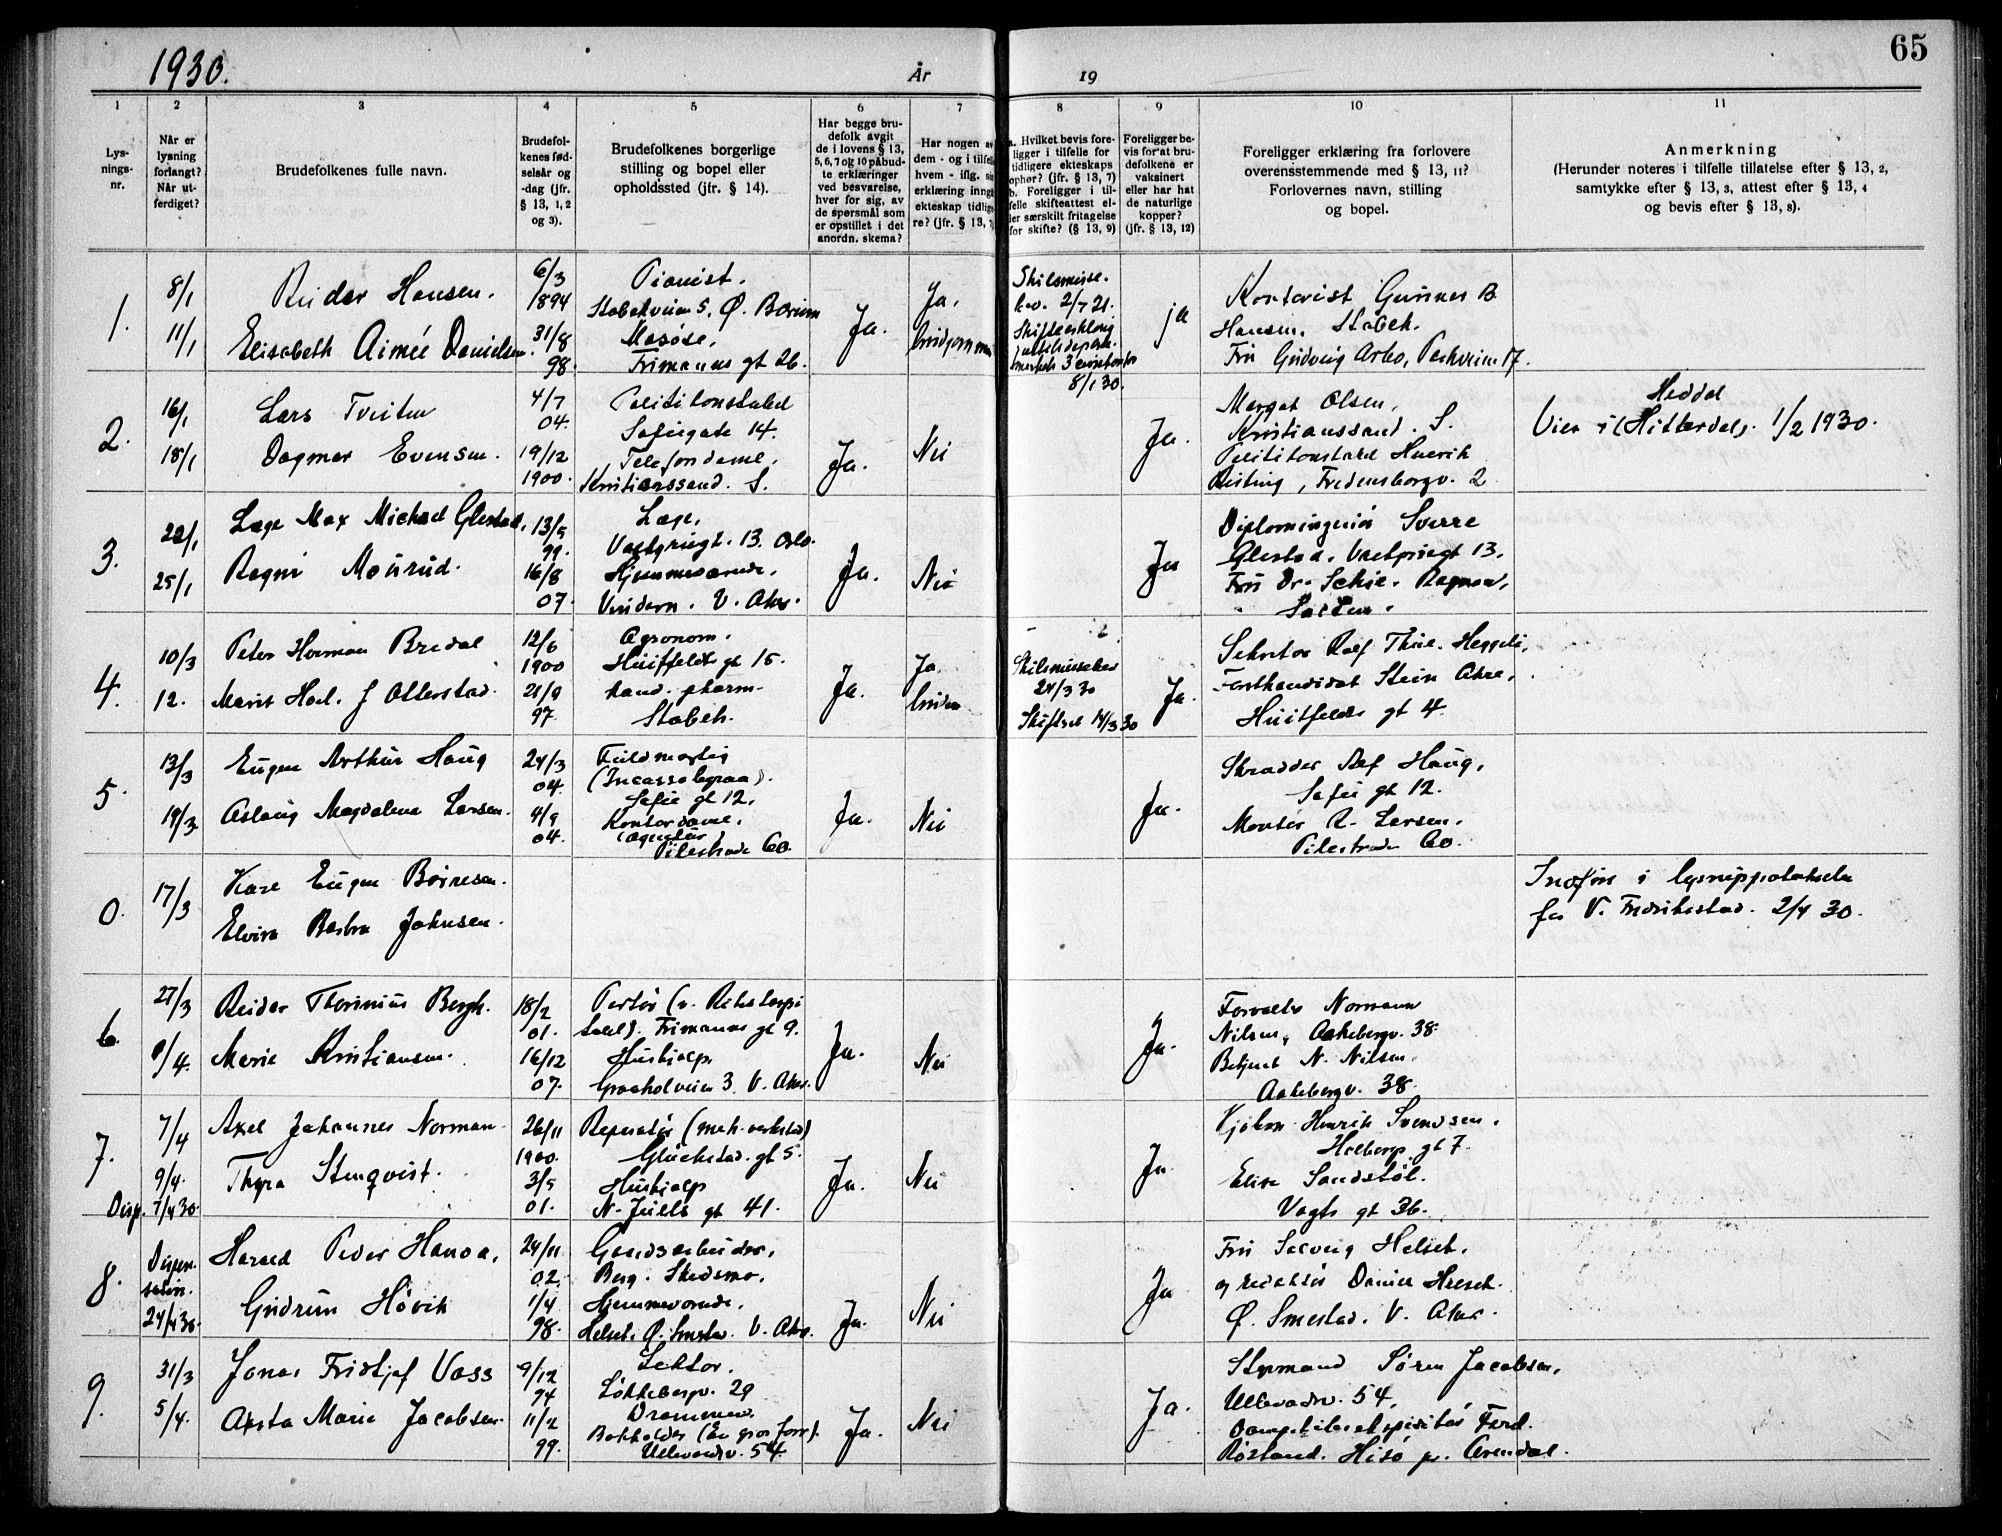 1930.
År
19
65
1
2
3
4
5
6
7
8
9
10
11
Lys-
nings-
nr.
Når er
lysning
forlangt?
Når ut-
ferdiget?
Brudefolkenes fulle navn.
Brudefol-
kenes fød-
selsår og
-dag (jfr.
§ 13, 1, 2
og 3).
Brudefolkenes borgerlige
stilling og bopel eller
opholdssted (jfr. § 14).
Har begge bru-
defolk avgit
de i lovens § 13,
5, 6, 7 og 10 påbud-
te erklæringer
ved besvarelse,
hver for sig, av
de spørsmål som
er opstillet i det
anordn. skema?
Har nogen av
dem - og i tilfelle
hvem - iflg. sin
erklæring inngått
ekteskap tidlige-
re? (jfr. § 13, 7)
a. Hvilket bevis fore-
ligger i tilfelle for
tidligere ekteskaps
ophør? (§ 13, 7)
b. Foreligger i til-
felle skifteattest el-
ler særskilt fritagelse
for skifte? (§ 13, 9)
Foreligger be-
vis for at bru-
defolkene er
vaksinert
eller har hat
de naturlige
kopper?
(jfr. § 13, 12)
Foreligger erklæring fra forlovere
overensstemmende med § 13, 11?
Forlovernes navn, stilling
og bopel.
Anmerkning
(Herunder noteres i tilfelle tillatelse efter § 13, 2,
samtykke efter § 13, 3, attest efter § 13, 4
og bevis efter § 13, 8).
1.
8/1
11/1
Reidar Hansen.
Elisabeth Aimée Danielsen.
6/3
1894
31/8
98.
Pianist.
Stabekveien 5, Ø. Bærum
Masøse,
Frimanns gt 26.
Ja.
Ja,
brudgommen
Skilsmisse-
bev. 2/7 21.
8/1 30.
ja
Gunnar B.
Hansen, Stabek.
Fru Gudveig Arbo, Parkveien 17.
2.
16/1
18/1
Lars Tveiten
Dagmar Evensen.
4/7
04.
19/12
1900.
Politikonstabel
Sofiegate 14.
Telefondame,
Kristianssand. S.
Ja.
Nei
Ja.
Margot Olsen,
Kristianssand. S.
Politikonstabel Henrik
Risting, Fredensborgv. 2
Heddal
Viet i (Hitterdal). 1/2 1930.
3.
22/1
25/1
Læge Max Michael Glestad.
Ragni Mourud.
13/5
99.
16/8
07.
Læge,
13. Oslo.
Hjemmeværende,
Vindern. V. Aker.
Ja.
Nei
Ja
Diplomingeniør Sverre
Glestad, 13.
Fru Dr. Schie.
4.
10/3
12.
Peter Herman Bredal
Marit J Otterstad.
12/6
1900
21/9
97.
Agronom.
Huitfeldts gt 15.
kand. pharm.
Stabek.
Ja.
Ja.
bruden
24/3 30
14/3 30
Ja.
Sekretær Rolf Thue. Heggeli,
Forstkandidat Stein
Huitfeldts gt 4.
5.
13/3
19/3
Eugen Arthur Haug
Aslaug Magdalena Larsen.
24/3
04.
4/9
04.
Fuldmektig
Sofie gt 12.
Kontordame,
(agentur)
Pilestrade 60.
Ja.
Nei
Ja.
Skrædder Alf Haug,
Sofie gt 12.
Montør R. Larsen,
Pilestrade 60.
0.
17/3
Kare Eugen Børresen.
Elvira Barbra Johnsen.
Innført i lysningsprotokollen
for V. Fredrikstad. 2/4 30.
6.
27/3
9/4.
Reidar Thorinius Bergh.
Marie Kristiansen.
18/2
01.
16/12
07.
Portør (v. Rikshospi
talet). Frimanns gt 9.
Hushjælp
3. V. Aker.
Ja.
Nei
Ja.
Forvalter Normann
Nilsen, Aakebergv. 38
Betjent N. Nilsen.
Aakebergv. 38.
7.
7/4
9/4.
Disp. 7/4 30.
Axel Johannes Norman
Thyra Stenqvist.
26/11
1900.
3/5
01.
Reparatør (mek. verksted)
Glückstad. gt 5.
Hushjælp
N. Juels gt 41.
Ja.
Nei
Ja
Kjøbm. Henrik Svendsen.
Holberg gt 7.
Elise Sandstøl.
Vogts gt 36.
8.
Dispen-
sation.
24/4 30.
Harald Peder Hanoa.
Gudrun Høvik
24/11
02.
1/4
98.
Gaardsarbeider,
Berg. Skedsmo.
Hjemmeværende,
Helset. Ø. Smestad. V. Aker.
Ja.
Nei
Ja
Fru Solveig Helset.
og redaktør Daniel Helset.
Ø. Smestad. V. Aker.
9.
31/3
5/4.
Jonas Fridtjof Vass
Asta Marie Jacobsen.
9/12
94
11/2
99.
Lektor.
Løkkebergv. 29
Drammen.
Bokholder (En gros forr).
Ullevaalsv. 54.
Ja.
Nei
Ja.
Styrmand Søren Jacobsen,
Ullevaalsv. 54,
Ferd.
Røstand. Hisø pr. Arendal.